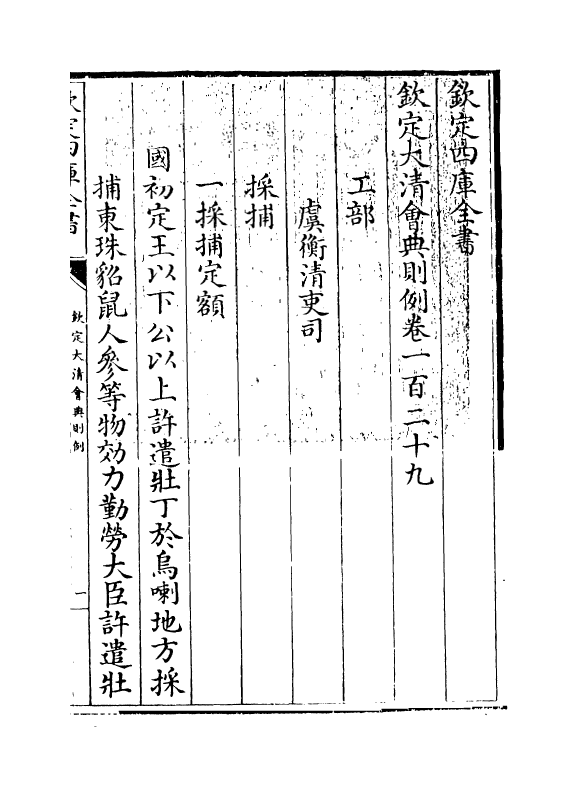 欽定四庫全書
欽定大清會典則例卷一百二十九
工部
虞衡清吏司
採捕
一採捕定額
國初定王以下公以上許遣壯丁於烏喇地方採
捕東珠貂鼠人參等物効力勤勞大臣許遣壯
欽定四庫全書
欽定大清會典則例
一